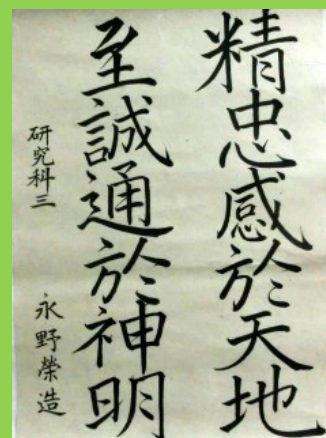 精忠感於天地
至誠通於神明
研究科三
永野榮造